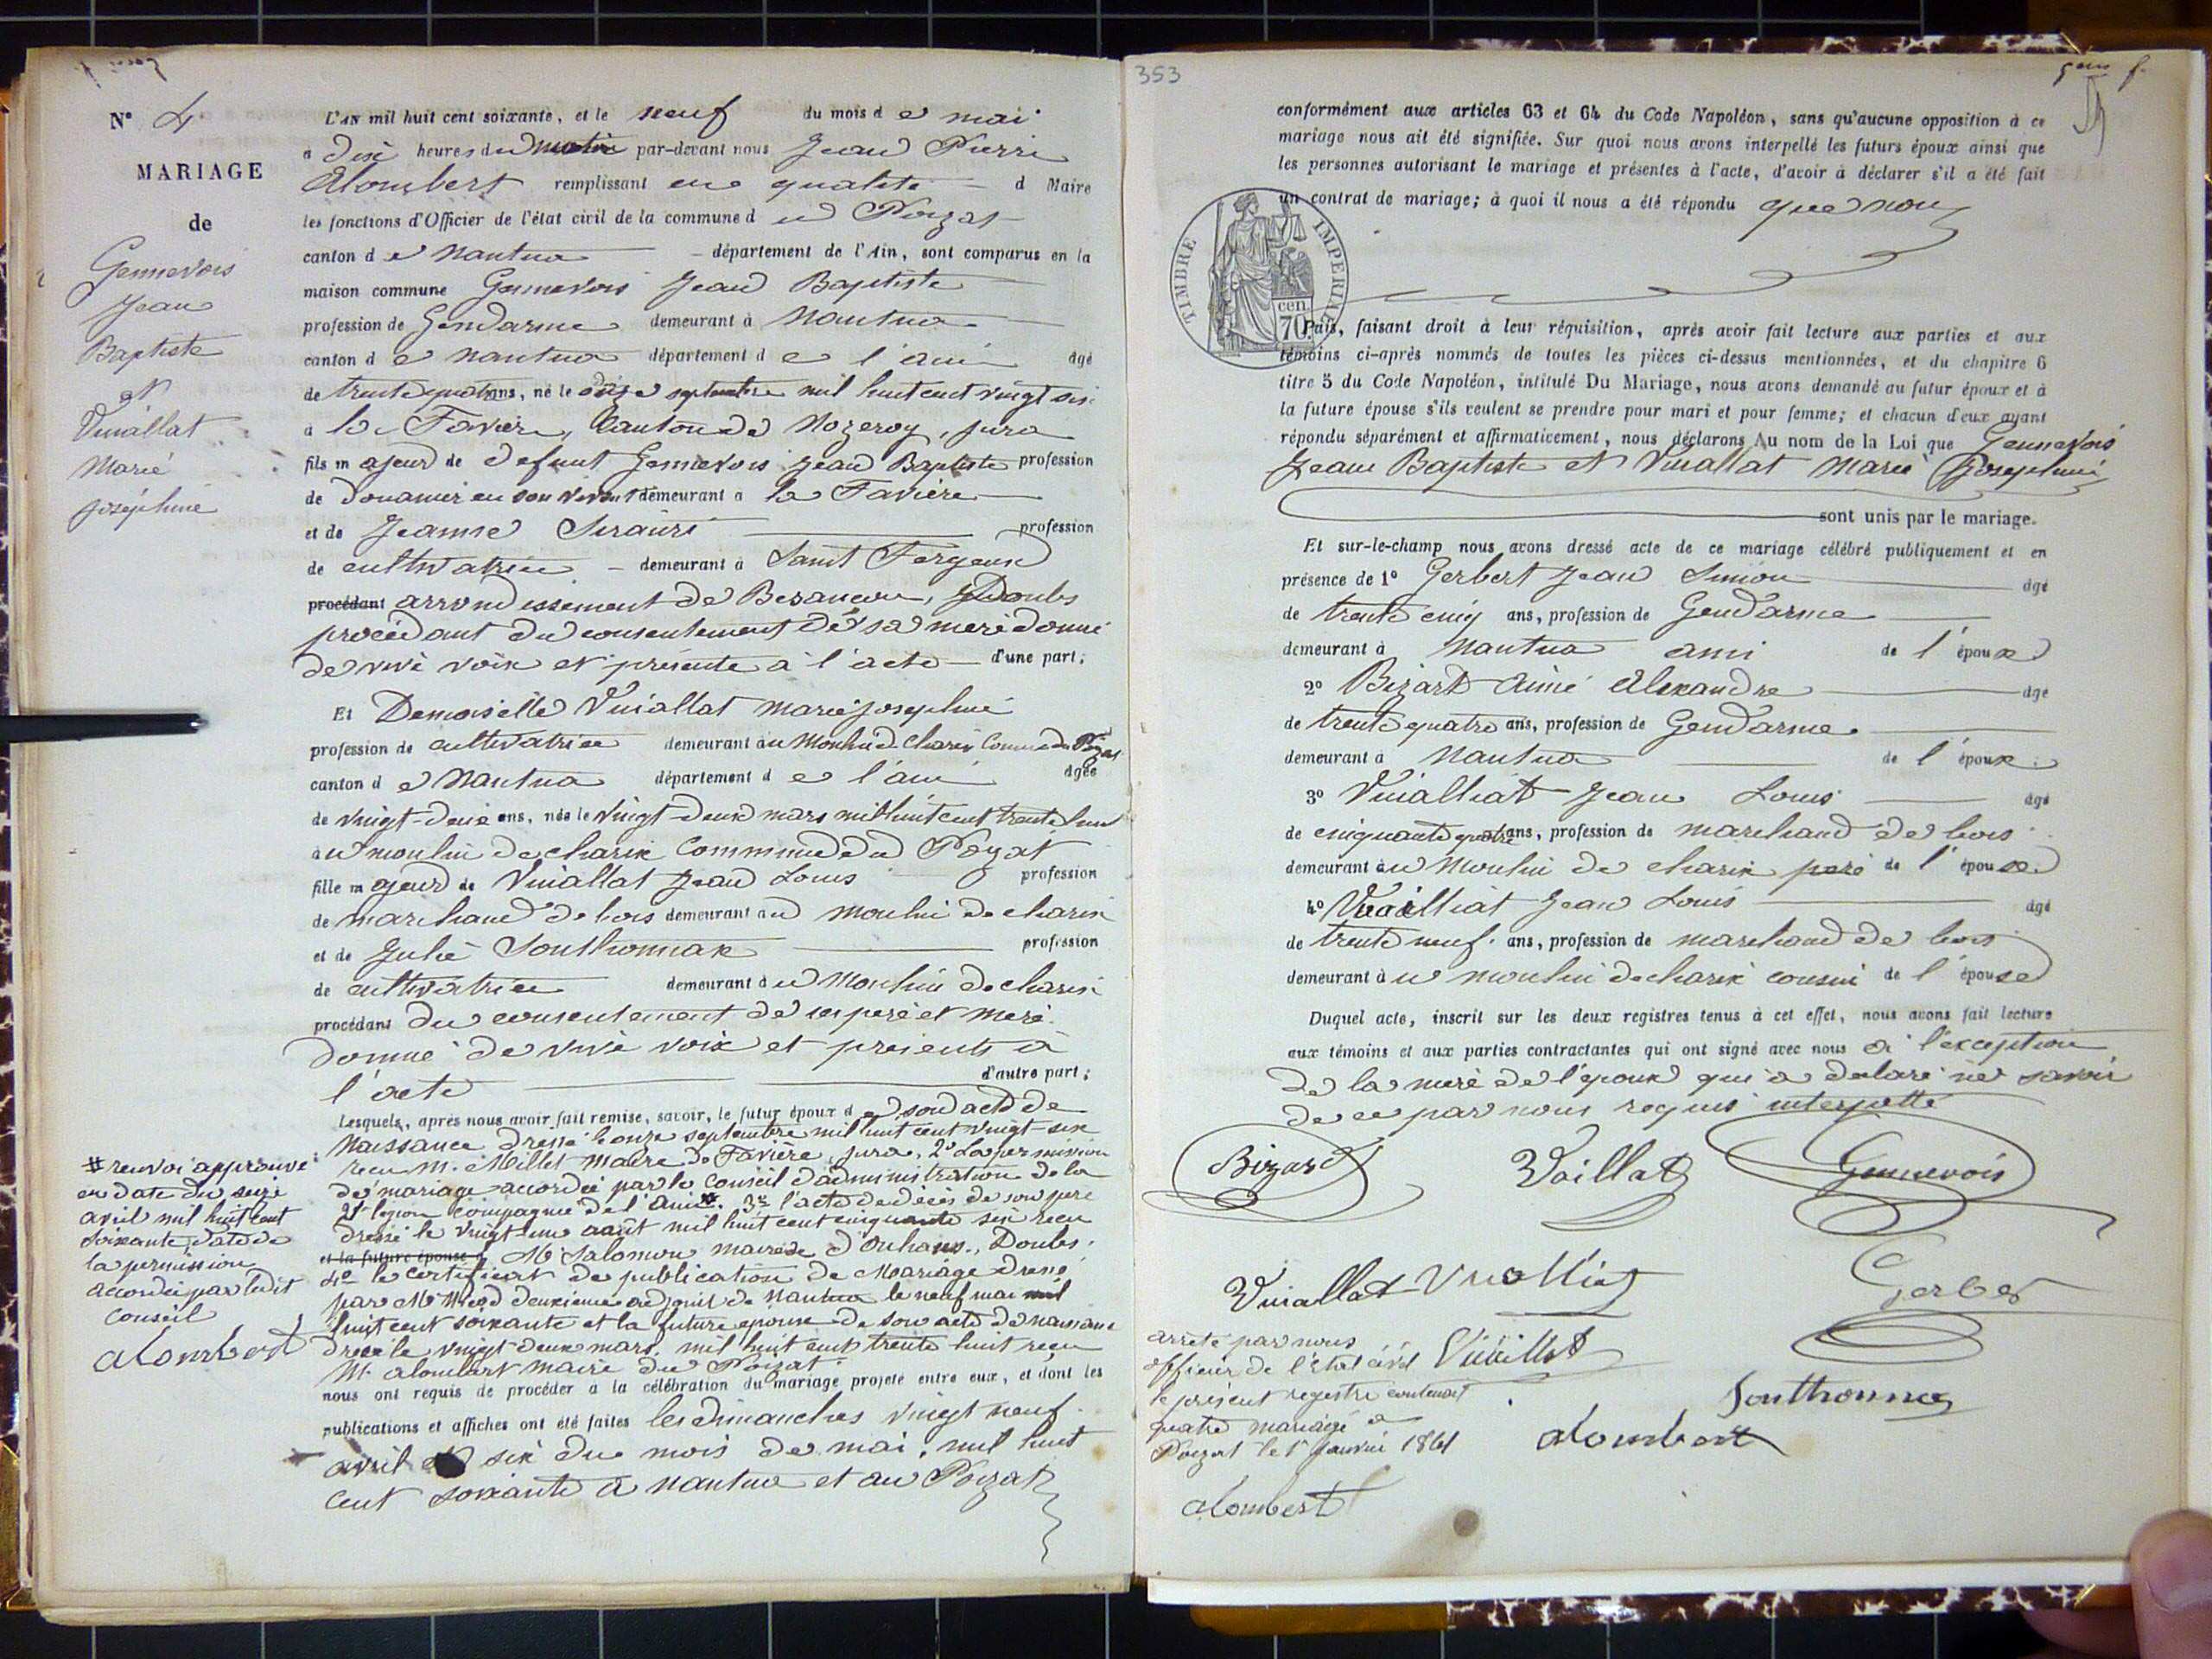 N° 4
MARIAGE
de
Gennevois
Jean
Baptiste
et
Vuiallat
Marie
Joséphine
L'AN mil huit cent soixante, et le neuf du mois de mai
à dix heures du matin par-devant nous Jean Pierre
Alombert remplissant en qualité d Maire
les fonctions d'Officier de l'état civil de la commune du Poizat
canton de Nantua département de l'Ain, sont comparus en la
maison commune Gennevois Jean Baptiste
profession de Gendarme demeurant à Nantua
canton de Nantua département de l'ain âgé
de trente quatre ans, né le onze septembre mil huit cent vingt six
à la Favière, Canton de Nozeroy, Jura
fils majeur de defunt Gennevois Jean Baptiste profession
de Douanier en son vivant demeurant à la Favière
et de Jeanne profession
de cultivatrice demeurant à Saint Fergeux
procédant arrondissement de Besançon, Doubs
procédant du consentement de sa mere donné
de vive voix et présente à l'acte d'une part;
Et Demoiselle Vuiallat marie josephine
profession de cultivatrice demeurant au Moulin de Charix Commune du Poizat
canton de Nantua département de l'ain âgée
de vingt-deux ans, née le vingt-deux mars mil huit cent trente huit
au moulin de charix Commune du Poizat
fille majeure de Vuiallat Jean Louis profession
de marchand de bois demeurant au moulin de charix
et de Julie Southonnax profession
de cultivatrice demeurant au Moulin de charix
procédant du consentement de ses père et mere
donné de vive voix et présents à
l'acte d'autre part;
Lesquels, après nous avoir fait remise, savoir, le futur époux de son acte de
Naissance dressé le onze septembre mil huit cent vingt-six
reçu M. Millet Maire de Favière, Jura, 2° La permission
de mariage accordée par le Conseil d'administration de la
légion compagnie de l'Ain #. 3° l'acte de deces de son pere
dressé le vingt-un août mil huit cent cinquante six reçu
et la future épouse d M. Salomon maire d'Ouhans, Doubs.
4° le certificat de publication de Mariage dressé
par M. deuxieme adjoint de Nantua le neuf mai mil
huit cent soixante et la future epouse de son acte de naissance
dressé le vingt deux mars mil huit cent trente huit reçu
M. alombert maire du Poizat
nous ont requis de procéder à la célébration du mariage projeté entre eux, et dont les
publications et affiches ont été faites les dimanches vingt neuf
avril et six du mois de mai, mil huit
cent soixante à Nantua et au Poizat
# renvoi approuvé
en date du seize
avril mil huit cent
soixante date de
la permission
accordée par ledit
Conseil
Alombert
353
conformément aux articles 63 et 64 du Code Napoléon, sans qu'aucune opposition à ce
mariage nous ait été signifiée. Sur quoi nous avons interpellé les futurs époux ainsi que
les personnes autorisant le mariage et présentes à l'acte, d'avoir à déclarer s'il a été fait
un contrat de mariage; à quoi il nous a été répondu que non
TIMBRE IMPERIAL
70 cen.
Puis, faisant droit à leur réquisition, après avoir fait lecture aux parties et aux
témoins ci-après nommés de toutes les pièces ci-dessus mentionnées, et du chapitre 6
titre 5 du Code Napoléon, intitulé Du Mariage, nous avons demandé au futur époux et à
la future épouse s'ils veulent se prendre pour mari et pour femme; et chacun d'eux ayant
répondu séparément et affirmativement, nous déclarons Au nom de la Loi que Gennevois
Jean Baptiste et Vuiallat Marie Joséphine
sont unis par le mariage.
Et sur-le-champ nous avons dressé acte de ce mariage célébré publiquement et en
présence de 1° Gerbert Jean Simon âgé
de trente cinq ans, profession de Gendarme
demeurant à Nantua ami de l'époux
2° Bizard Aimé Alexandre âgé
de trente quatre ans, profession de Gendarme
demeurant à Nantua de l'époux
3° Vuialliat Jean Louis âgé
de cinquante quatre ans, profession de marchand de bois
demeurant au Moulin de charix père de l'épouse
4° Vuailliat Jean Louis âgé
de trente neuf ans, profession de marchand de bois
demeurant au moulin de charix cousin de l'épouse
Duquel acte, inscrit sur les deux registres tenus à cet effet, nous avons fait lecture
aux témoins et aux parties contractantes qui ont signé avec nous à l'exception
de la mere de l'epoux qui a déclaré ne savoir
de ce par nous requis interpellé
Bizard Vaillat Gennevois
Vuiallat Vuolliat Gerber
arreté par nous
officier de l'état civil Vuillat
le présent registre contenant
quatre mariage a
Poizat le 1er janvier 1861
Southonnax
Alombert
Alombert